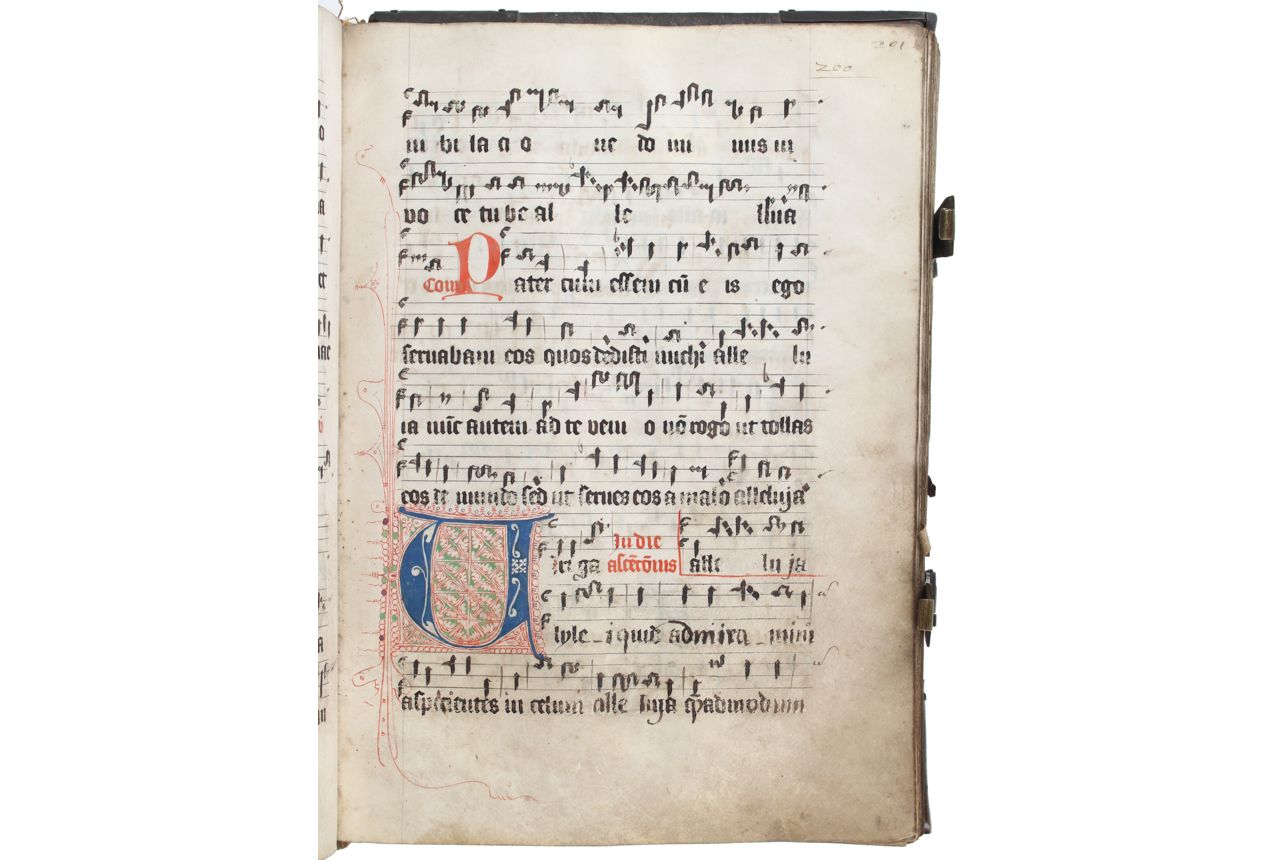 201
200
iu bi la ci o ne do mi nus in
vo ce tu be al le lluia
Com P ater cum essem cū e is ego
seruabam eos quos dedisti michi alle lu
ia nūc autem ad te veni o nō rogo ut tollas
eos de mundo sed ut serues eos a malo alleluja
V iri ga In die alle lu ja
ascēcōnis
lyle i quid admira mini
aspicientes in celum alle luja qēadmodum